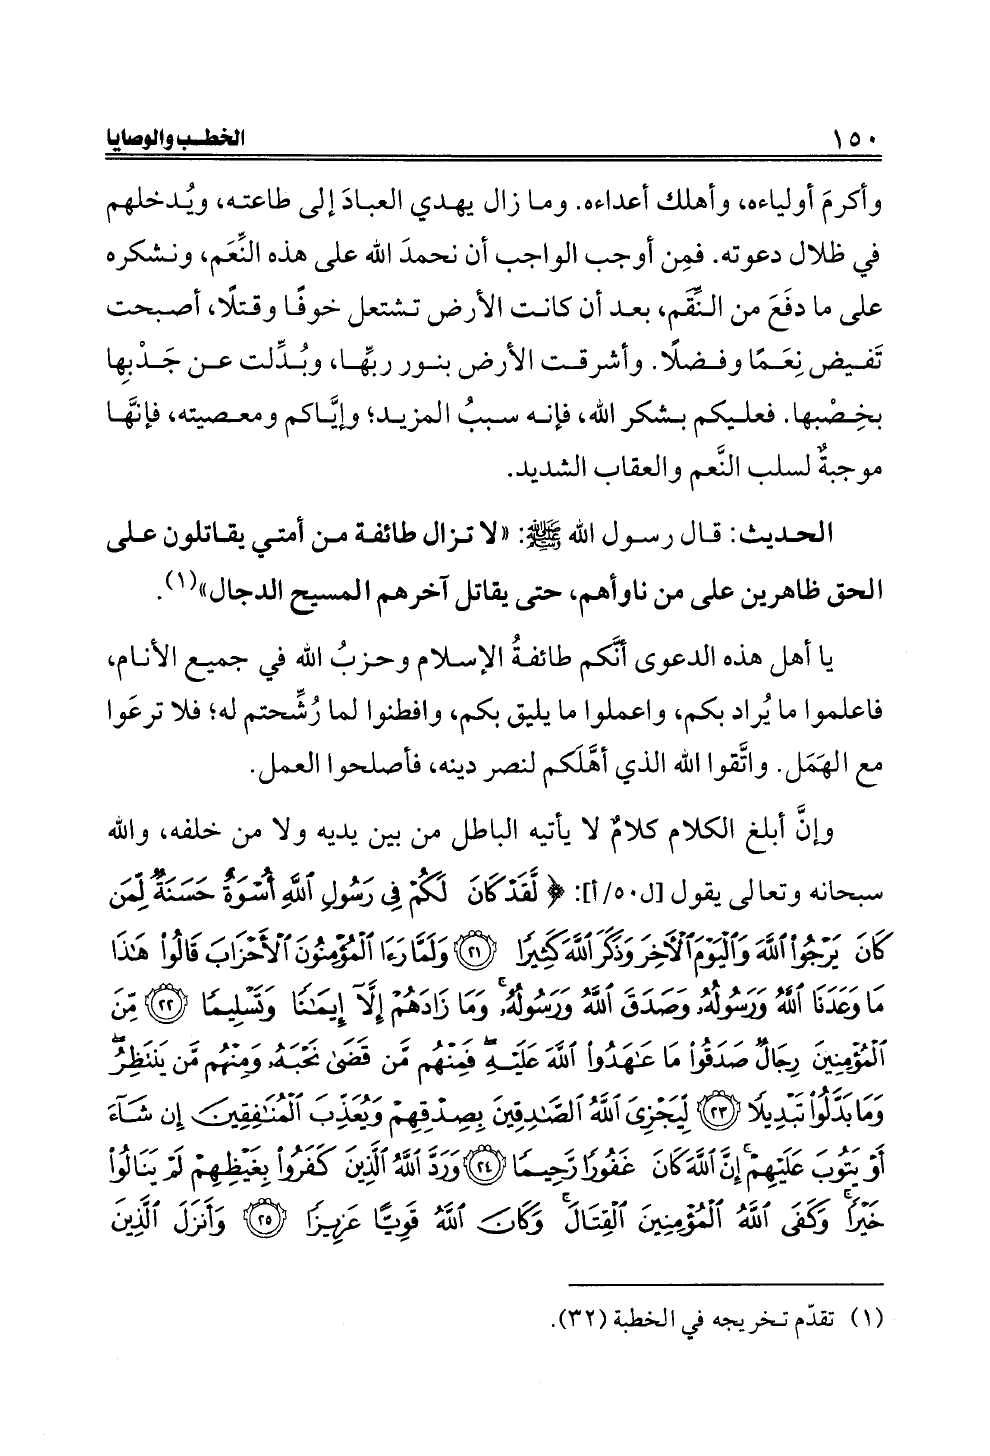 ١٥٠ الخطب والوصايا
وأكرمَ أولياءه، وأهلك أعداءه. وما زال يهدي العبادَ إلى طاعته، ويُدخلهم
في ظلال دعوته. فمِن أوجب الواجب أن نحمدَ الله على هذه النِّعَم، ونشكره
على ما دفَعَ من النِّقَم، بعد أن كانت الأرض تشتعل خوفًا وقتلًا، أصبحت
تَفيض نِعَمًا وفضلًا. وأشرقت الأرض بنور ربِّها، وبُدِّلت عن جَذْبِها
بخِصْبها. فعليكم بشكر الله، فإنه سببُ المزيد؛ وإيَّاكم ومعصيته، فإنهَّا
موجبةٌ لسلب النَّعم والعقاب الشديد.
الحديث: قال رسول الله ﷺ: «لا تزال طائفة من أمتي يقاتلون على
الحق ظاهرين على من ناوأهم، حتى يقاتل آخرهم المسيح الدجال»(١).
يا أهل هذه الدعوى أنَّكم طائفةُ الإسلام وحزبُ الله في جميع الأنام،
فاعلموا ما يُراد بكم، واعملوا ما يليق بكم، وافطنوا لما رُشِّحتم له؛ فلا ترعَوا
مع الهَمَل. واتَّقوا الله الذي أهَّلَكم لنصر دينه، فأصلحوا العمل.
وإنَّ أبلغ الكلام كلامٌ لا يأتيه الباطل من بين يديه ولا من خلفه، والله
سبحانه وتعالى يقول [ل٥٠/أ]: ﴿ لَّقَدْ كَانَ لَكُمْ فِي رَسُولِ ٱللَّهِ أُسْوَةٌ حَسَنَةٌ لِّمَن
كَانَ يَرْجُوا۟ ٱللَّهَ وَٱلْيَوْمَ ٱلْآخِرَ وَذَكَرَ ٱللَّهَ كَثِيرًا ۝٢١ وَلَمَّا رَءَا ٱلْمُؤْمِنُونَ ٱلْأَحْزَابَ قَالُوا۟ هَٰذَا
مَا وَعَدَنَا ٱللَّهُ وَرَسُولُهُۥ وَصَدَقَ ٱللَّهُ وَرَسُولُهُۥ ۚ وَمَا زَادَهُمْ إِلَّآ إِيمَٰنًا وَتَسْلِيمًا ۝٢٢ مِّنَ
ٱلْمُؤْمِنِينَ رِجَالٌ صَدَقُوا۟ مَا عَٰهَدُوا۟ ٱللَّهَ عَلَيْهِ ۖ فَمِنْهُم مَّن قَضَىٰ نَحْبَهُۥ وَمِنْهُم مَّن يَنتَظِرُ ۖ
وَمَا بَدَّلُوا۟ تَبْدِيلًا ۝٢٣ لِّيَجْزِىَ ٱللَّهُ ٱلصَّٰدِقِينَ بِصِدْقِهِمْ وَيُعَذِّبَ ٱلْمُنَٰفِقِينَ إِن شَآءَ
أَوْ يَتُوبَ عَلَيْهِمْ ۚ إِنَّ ٱللَّهَ كَانَ غَفُورًا رَّحِيمًا ۝٢٤ وَرَدَّ ٱللَّهُ ٱلَّذِينَ كَفَرُوا۟ بِغَيْظِهِمْ لَمْ يَنَالُوا۟
خَيْرًا ۚ وَكَفَى ٱللَّهُ ٱلْمُؤْمِنِينَ ٱلْقِتَالَ ۚ وَكَانَ ٱللَّهُ قَوِيًّا عَزِيزًا ۝٢٥ وَأَنزَلَ ٱلَّذِينَ
(١) تقدّم تخريجه في الخطبة (٣٢).